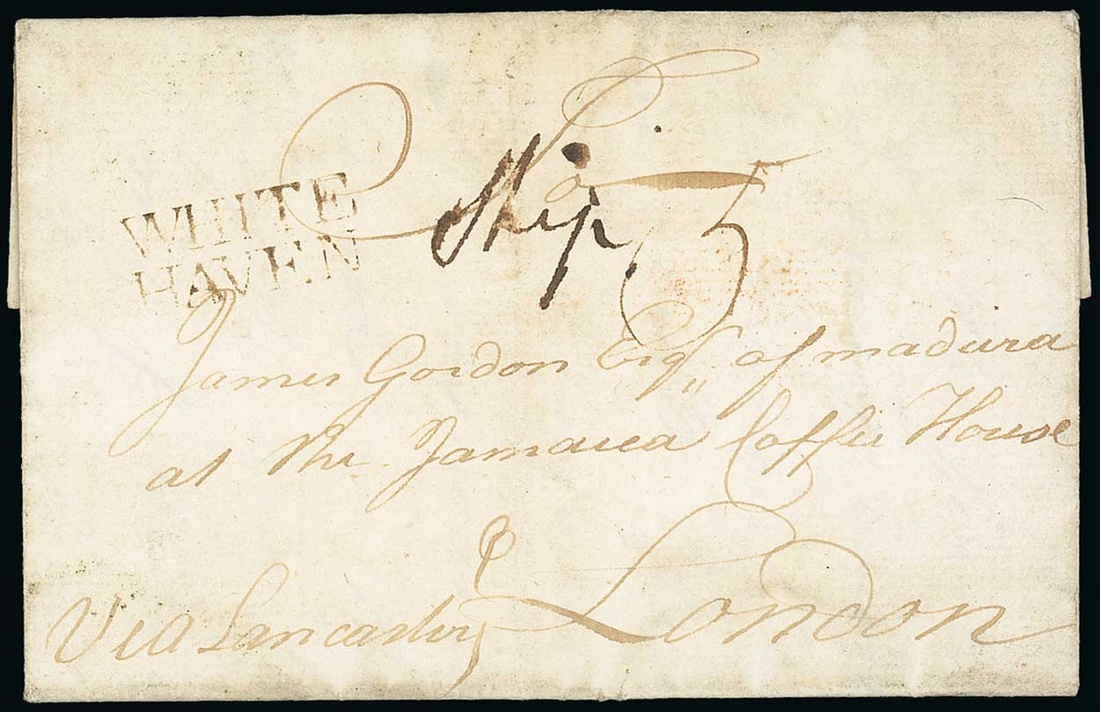 WHITE
HAVEN
Ship
5
To
James Gordon Esqr of madira
at the Jamaica Coffee House
London
Via Lancaster